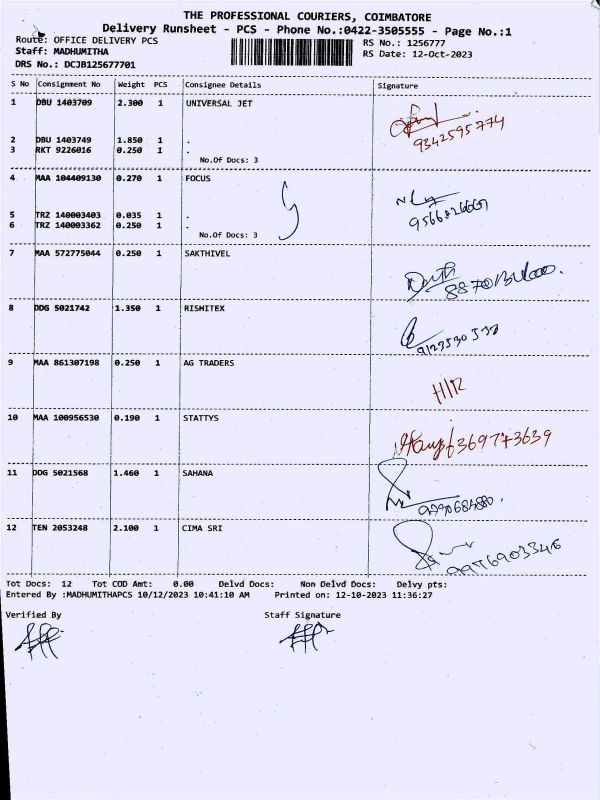 THE PROFESSIONAL COURIERS, COIMBATORE
Delivery Runsheet - PCS - Phone No.:0422-3505555 - Page No.:1
Route: OFFICE DELIVERY PCS
RS No.: 1256777
Staff: MADHUMITHA
RS Date: 12-Oct-2023
DRS No.: DCJB125677701
S No Consignment No Weight PCS Consignee Details Signature
1 DBU 1403709 2.300 1 UNIVERSAL JET
9342595774
2 DBU 1403749 1.850 1 .
3 RKT 9226016 0.250 1 .
No.Of Docs: 3
4 MAA 104409130 0.270 1 FOCUS
5 TRZ 140003403 0.035 1 .
6 TRZ 140003362 0.250 1 .
No.Of Docs: 3
7 MAA 572775044 0.250 1 SAKTHIVEL
8 DDG 5021742 1.350 1 RISHITEX
9 MAA 861307198 0.250 1 AG TRADERS
H/R
10 MAA 100956530 0.190 1 STATTYS
6369773639
11 DDG 5021568 1.460 1 SAHANA
12 TEN 2053248 2.100 1 CIMA SRI
9976903346
Tot Docs: 12 Tot COD Amt: 0.00 Delvd Docs: Non Delvd Docs: Delvy pts:
Entered By :MADHUMITHAPCS 10/12/2023 10:41:10 AM Printed on: 12-10-2023 11:36:27
Verified By Staff Signature